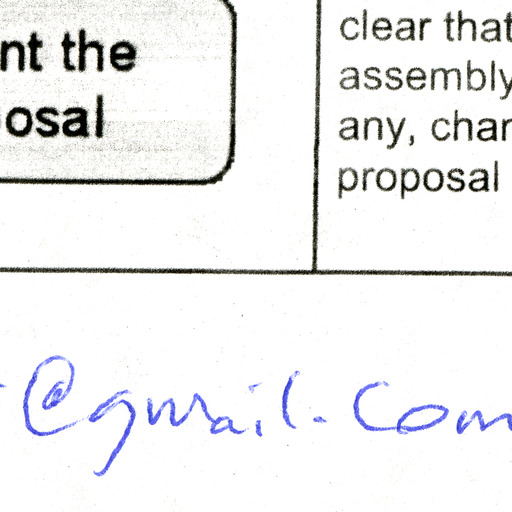 nt the
posal
clear that
assembly
any, char
proposal
@gmail.com